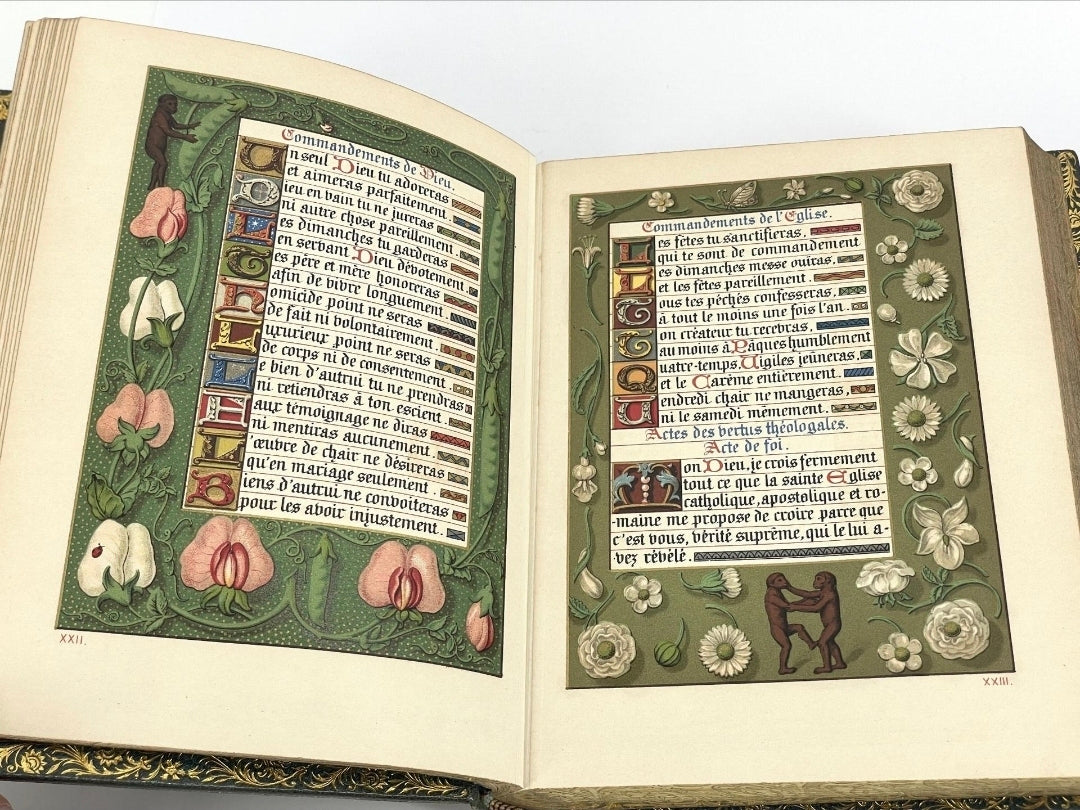 Commandements de Dieu.
Un seul Dieu tu adoreras
et aimeras parfaitement.
Dieu en vain tu ne jureras
ni autre chose pareillement.
Les dimanches tu garderas
en servant Dieu dévotement.
Tes père et mère honoreras
afin de vivre longuement.
Homicide point ne seras
de fait ni volontairement.
Luxurieux point ne seras
de corps ni de consentement.
Le bien d'autrui tu ne prendras
ni retiendras à ton escient.
Faux témoignage ne diras
ni mentiras aucunement.
L'œuvre de chair ne désireras
qu'en mariage seulement.
Biens d'autrui ne convoiteras
pour les avoir injustement.
XXII.
Commandements de l'Eglise.
Les fêtes tu sanctifieras,
qui te sont de commandement
Les dimanches messe ouïras,
et les fêtes pareillement.
Tous tes péchés confesseras,
à tout le moins une fois l'an.
Ton créateur tu recevras,
au moins à Pâques humblement
Quatre-temps, Vigiles jeûneras,
et le Carême entièrement.
Vendredi chair ne mangeras,
ni le samedi mêmement.
Actes des vertus théologales.
Acte de foi.
Mon Dieu, je crois fermement
tout ce que la sainte Eglise
catholique, apostolique et ro-
-maine me propose de croire parce que
c'est vous, vérité suprême, qui le lui a-
-vez révélé.
XXIII.